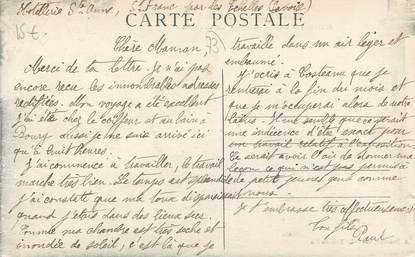 Hostellerie Ste Anne, St Franc par les Echelles (Savoie)
CARTE POSTALE
15€
Chère Maman
Merci de ta lettre. Je n'ai pas
encore reçu les innombrables adresses
rectifiées. Mon voyage a été excellent
J'ai été chez le coiffeur et au bain à
Bourg aussi je ne suis arrivé ici
qu'à huit heures.
J'ai commencé à travailler, le travail
marche très bien. Le temps est splendide
j'ai constaté que ma toux disparaissait
quand j'étais dans des lieux secs.
Comme ma chambre est très sèche et
inondée de soleil, c'est là que je
travaille dans un air léger et
embaumé.
J'écris à Costeanu que je
rentrerai à la fin du mois et
que je m'occuperai alors de notre
affaire. Il me semble que ce serait
une indécence d'être exact pour
un travail relatif à l'exposition
Ce serait avoir l'air de donner une
leçon ce qui n'est pas permis à
de petits jeunes gens comme
nous
Je t'embrasse très affectueusement
Ton fils
Paul